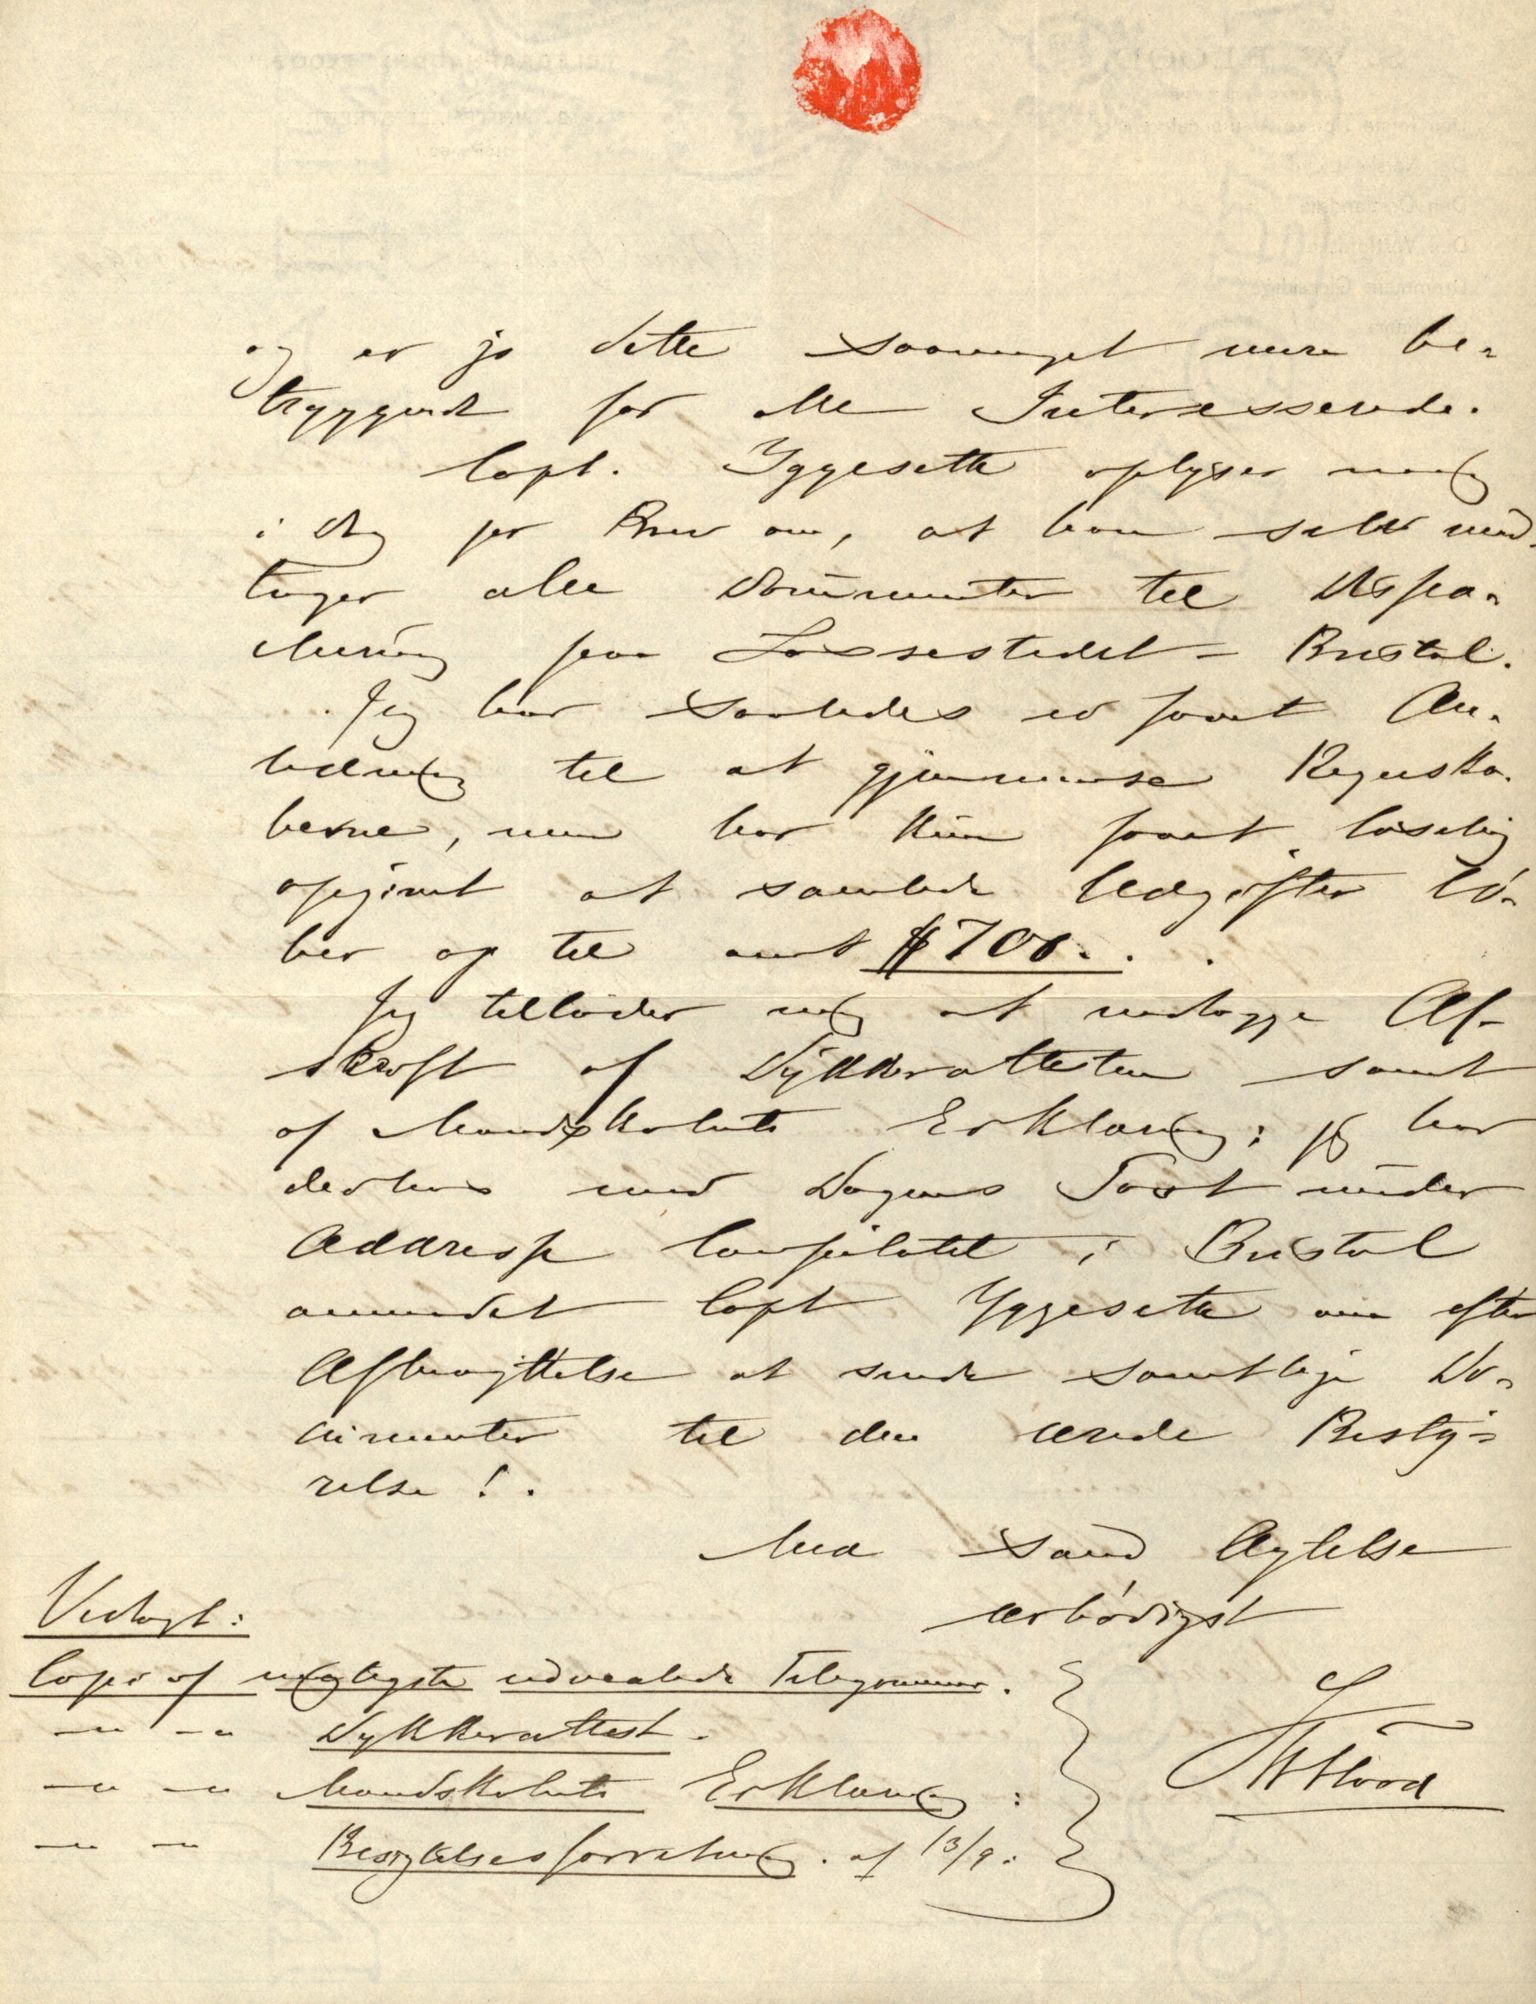 og er jo dette saameget mere be-
tryggende for alle Interesserede.
Capt. Yggeseth oplyser mig
i dag per Brev om, at han selv med-
tager alle Documenter til Dispa-
chering paa Lossestedet = Bristol.
Jeg har saaledes ei faaet An-
ledning til at gjennemse Regnska-
berne, men har kun faaet løselig
opgivet at samlede Udgifter lø-
ber op til ca $ 700. . .
Jeg tillader mig at vedlægge Af-
skrift af Dykkerattesten samt
af Mandskabets Erklæring; jeg har
derhos med Dagens Post under
Addresse Consulatet i Bristol
anmodet Capt Yggeseth om efter
Afbenyttelse at sende samtlige Do-
cumenter til den ærede Besty-
relse !.
Med sand Agtelse
ærbødigst
Vedlagt:
Copi af vigtigste udvexlede Telegrammer.
— " — " Dykkerattest.
— " — " Mandskabets Erklæring :
— " — " Besigtelsesforretning. af 13/9.
Flood